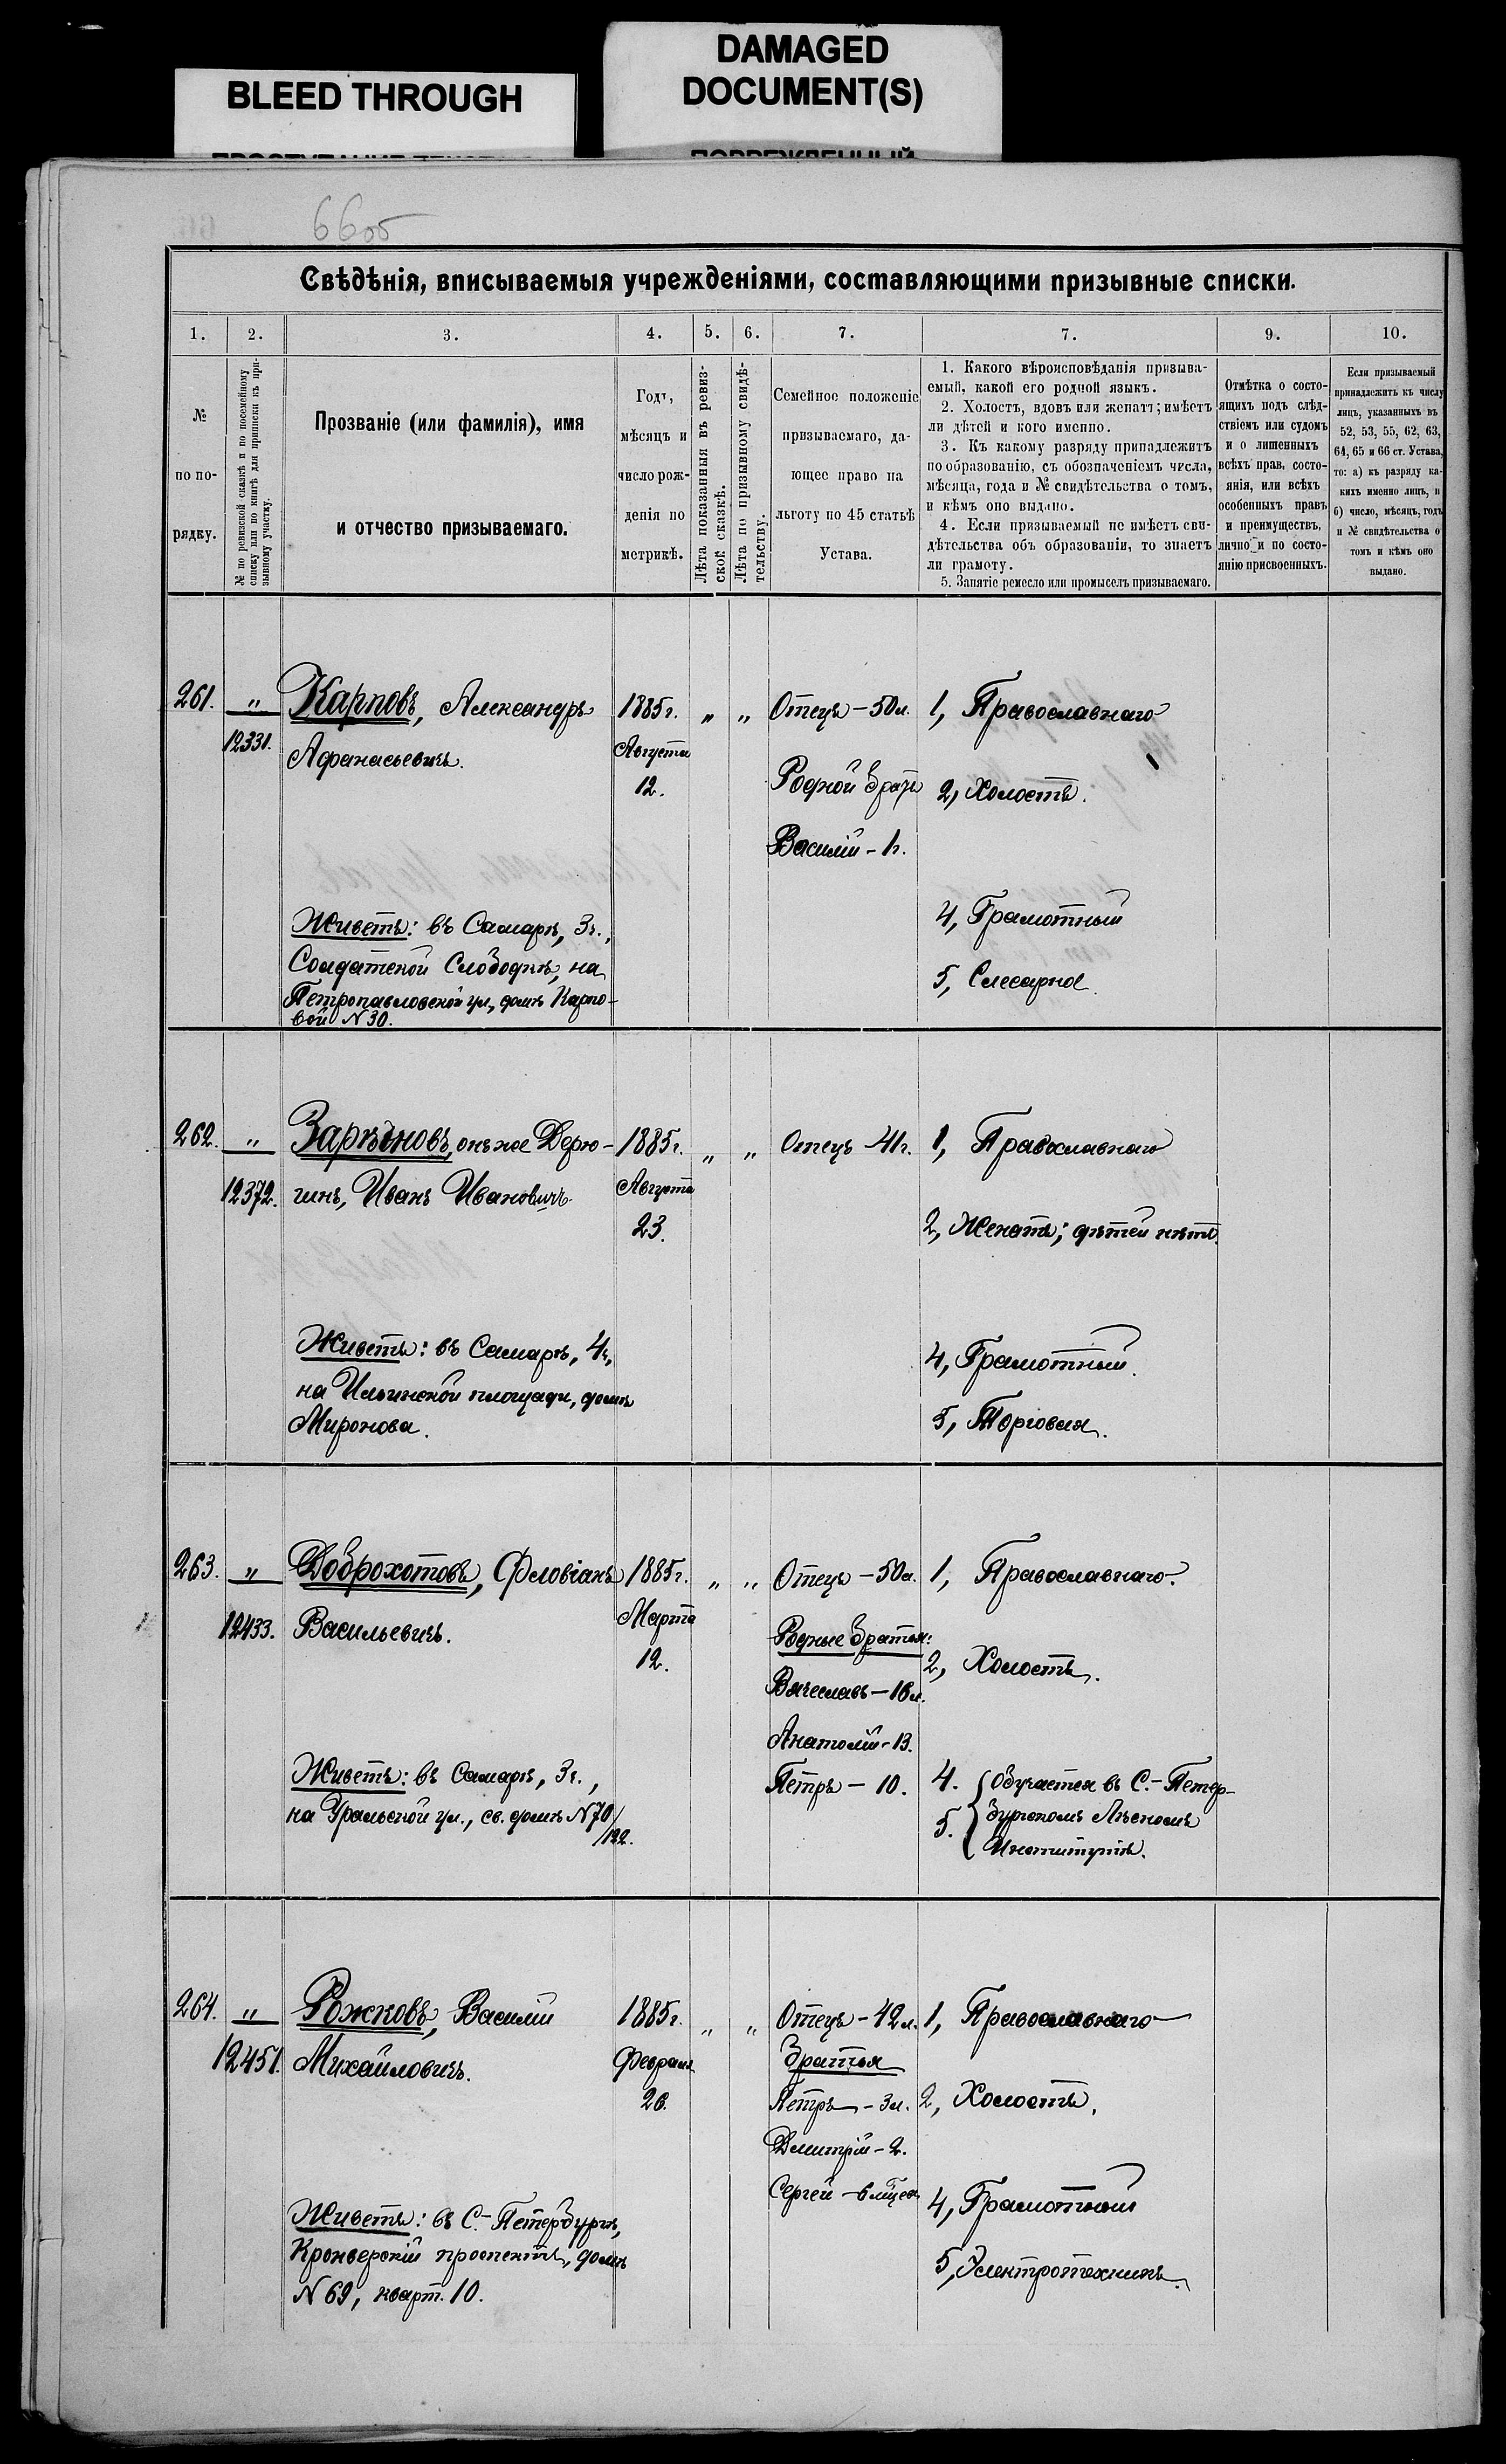 BLEED THROUGH
DAMAGED
DOCUMENT(S)
66об
Свѣдѣнія, вписываемыя учрежденіями, составляющими призывные списки.
1.
2.
3.
4.
5.
6.
7.
7.
9.
10.
№
по по-
рядку.
№ по ревизской сказкѣ и по посемейному
списку или по книгѣ для приписки къ при-
зывному участку.
Прозваніе (или фамилія), имя
и отчество призываемаго.
Годъ,
мѣсяцъ и
число рож-
денія по
метрикѣ.
Лѣта показанныя въ ревиз-
ской сказкѣ.
Лѣта по призывному свидѣ-
тельству.
Семейное положеніе
призываемаго, да-
ющее право на
льготу по 45 статьѣ
Устава.
1. Какого вѣроисповѣданія призыва-
емый, какой его родной языкъ.
2. Холостъ, вдовъ или женатъ; имѣетъ
ли дѣтей и кого именно.
3. Къ какому разряду принадлежитъ
по образованію, съ обозначеніемъ числа,
мѣсяца, года и № свидѣтельства о томъ,
и кѣмъ оно выдано.
4. Если призываемый не имѣетъ сви-
дѣтельства объ образованіи, то знаетъ
ли грамоту.
5. Занятіе ремесло или промыселъ призываемаго.
Отмѣтка о состо-
ящихъ подъ слѣд-
ствіемъ или судомъ
и о лишенныхъ
всѣхъ прав, состо-
янія, или всѣхъ
особенныхъ правъ
и преимуществъ,
лично и по состо-
янію присвоенныхъ.
Если призываемый
принадлежитъ къ числу
лицъ, указанныхъ въ
52, 53, 55, 62, 63,
64, 65 и 66 ст. Устава,
то: а) къ разряду ка-
кихъ именно лицъ, и
б) число, мѣсяцъ, годъ
и № свидѣтельства о
томъ и кѣмъ оно
выдано.
261. " Карповъ, Александръ 1885г. " " Отецъ – 50 л. 1, Православнаго
12331. Афанасьевичъ. Августа
12. Родной братъ 2, Холостъ.
Василій – 1г.
Живетъ: въ Самарѣ, 3ч., 4, Грамотный
Солдатской Слободкѣ, на 5, Слесарное
Петропавловской ул., домъ Карпо-
вой N 30.
262. " Зарѣдновъ, онъ же Дерю- 1885г. " " Отецъ – 41г. 1, Православнаго
12372. гинъ, Иванъ Ивановичъ. Августа
23. 2, Женатъ; дѣтей нѣтъ.
Живетъ: въ Самарѣ, 4ч, 4, Грамотный.
на Ильинской площади, домъ
Миронова. 5, Торговля.
263. " Доброхотовъ, Фловіанъ 1885г. " " Отецъ – 50 л. 1, Православнаго.
12433. Васильевичъ. Марта Родные братья:
12. 2, Холостъ.
Вячеславъ – 16 л.
Анатолій – 13.
Живетъ: въ Самарѣ, 3ч., Петръ – 10. 4. Обучается въ С.-Петер-
на Уральской ул., св. домъ N 70/132. 5. бургскомъ Лѣсномъ
Институтѣ.
264. " Рожковъ, Василій 1885г. " " Отецъ – 42 л. 1, Православнаго
12451. Михайловичъ. Февраля братья
26. Петръ – 3 л. 2, Холостъ.
Дмитрій – 2.
Сергей – 6 мѣсец. 4, Грамотный
Живетъ: въ С.-Петербургѣ,
Кронверкскій проспектъ, домъ 5, Электротехникъ.
N 69, кварт. 10.